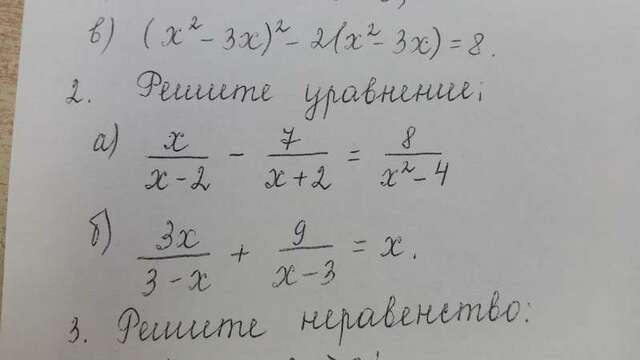 в) (x² - 3x)² - 2(x² - 3x) = 8.
2. Решите уравнение:
а) x/(x-2) - 7/(x+2) = 8/(x²-4)
б) 3x/(3-x) + 9/(x-3) = x.
3. Решите неравенство: